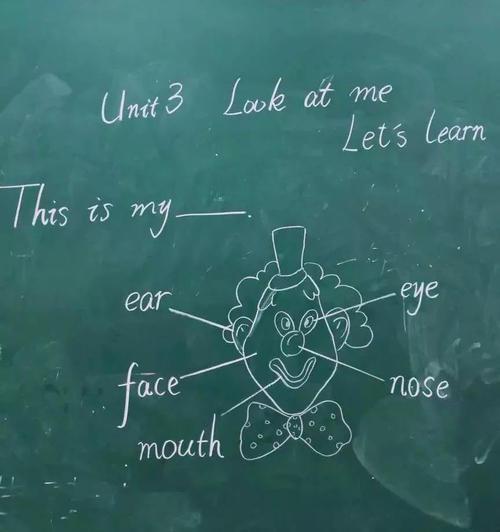 Unit 3 Look at me
Let's learn
This is my ____.
ear
eye
face
nose
mouth